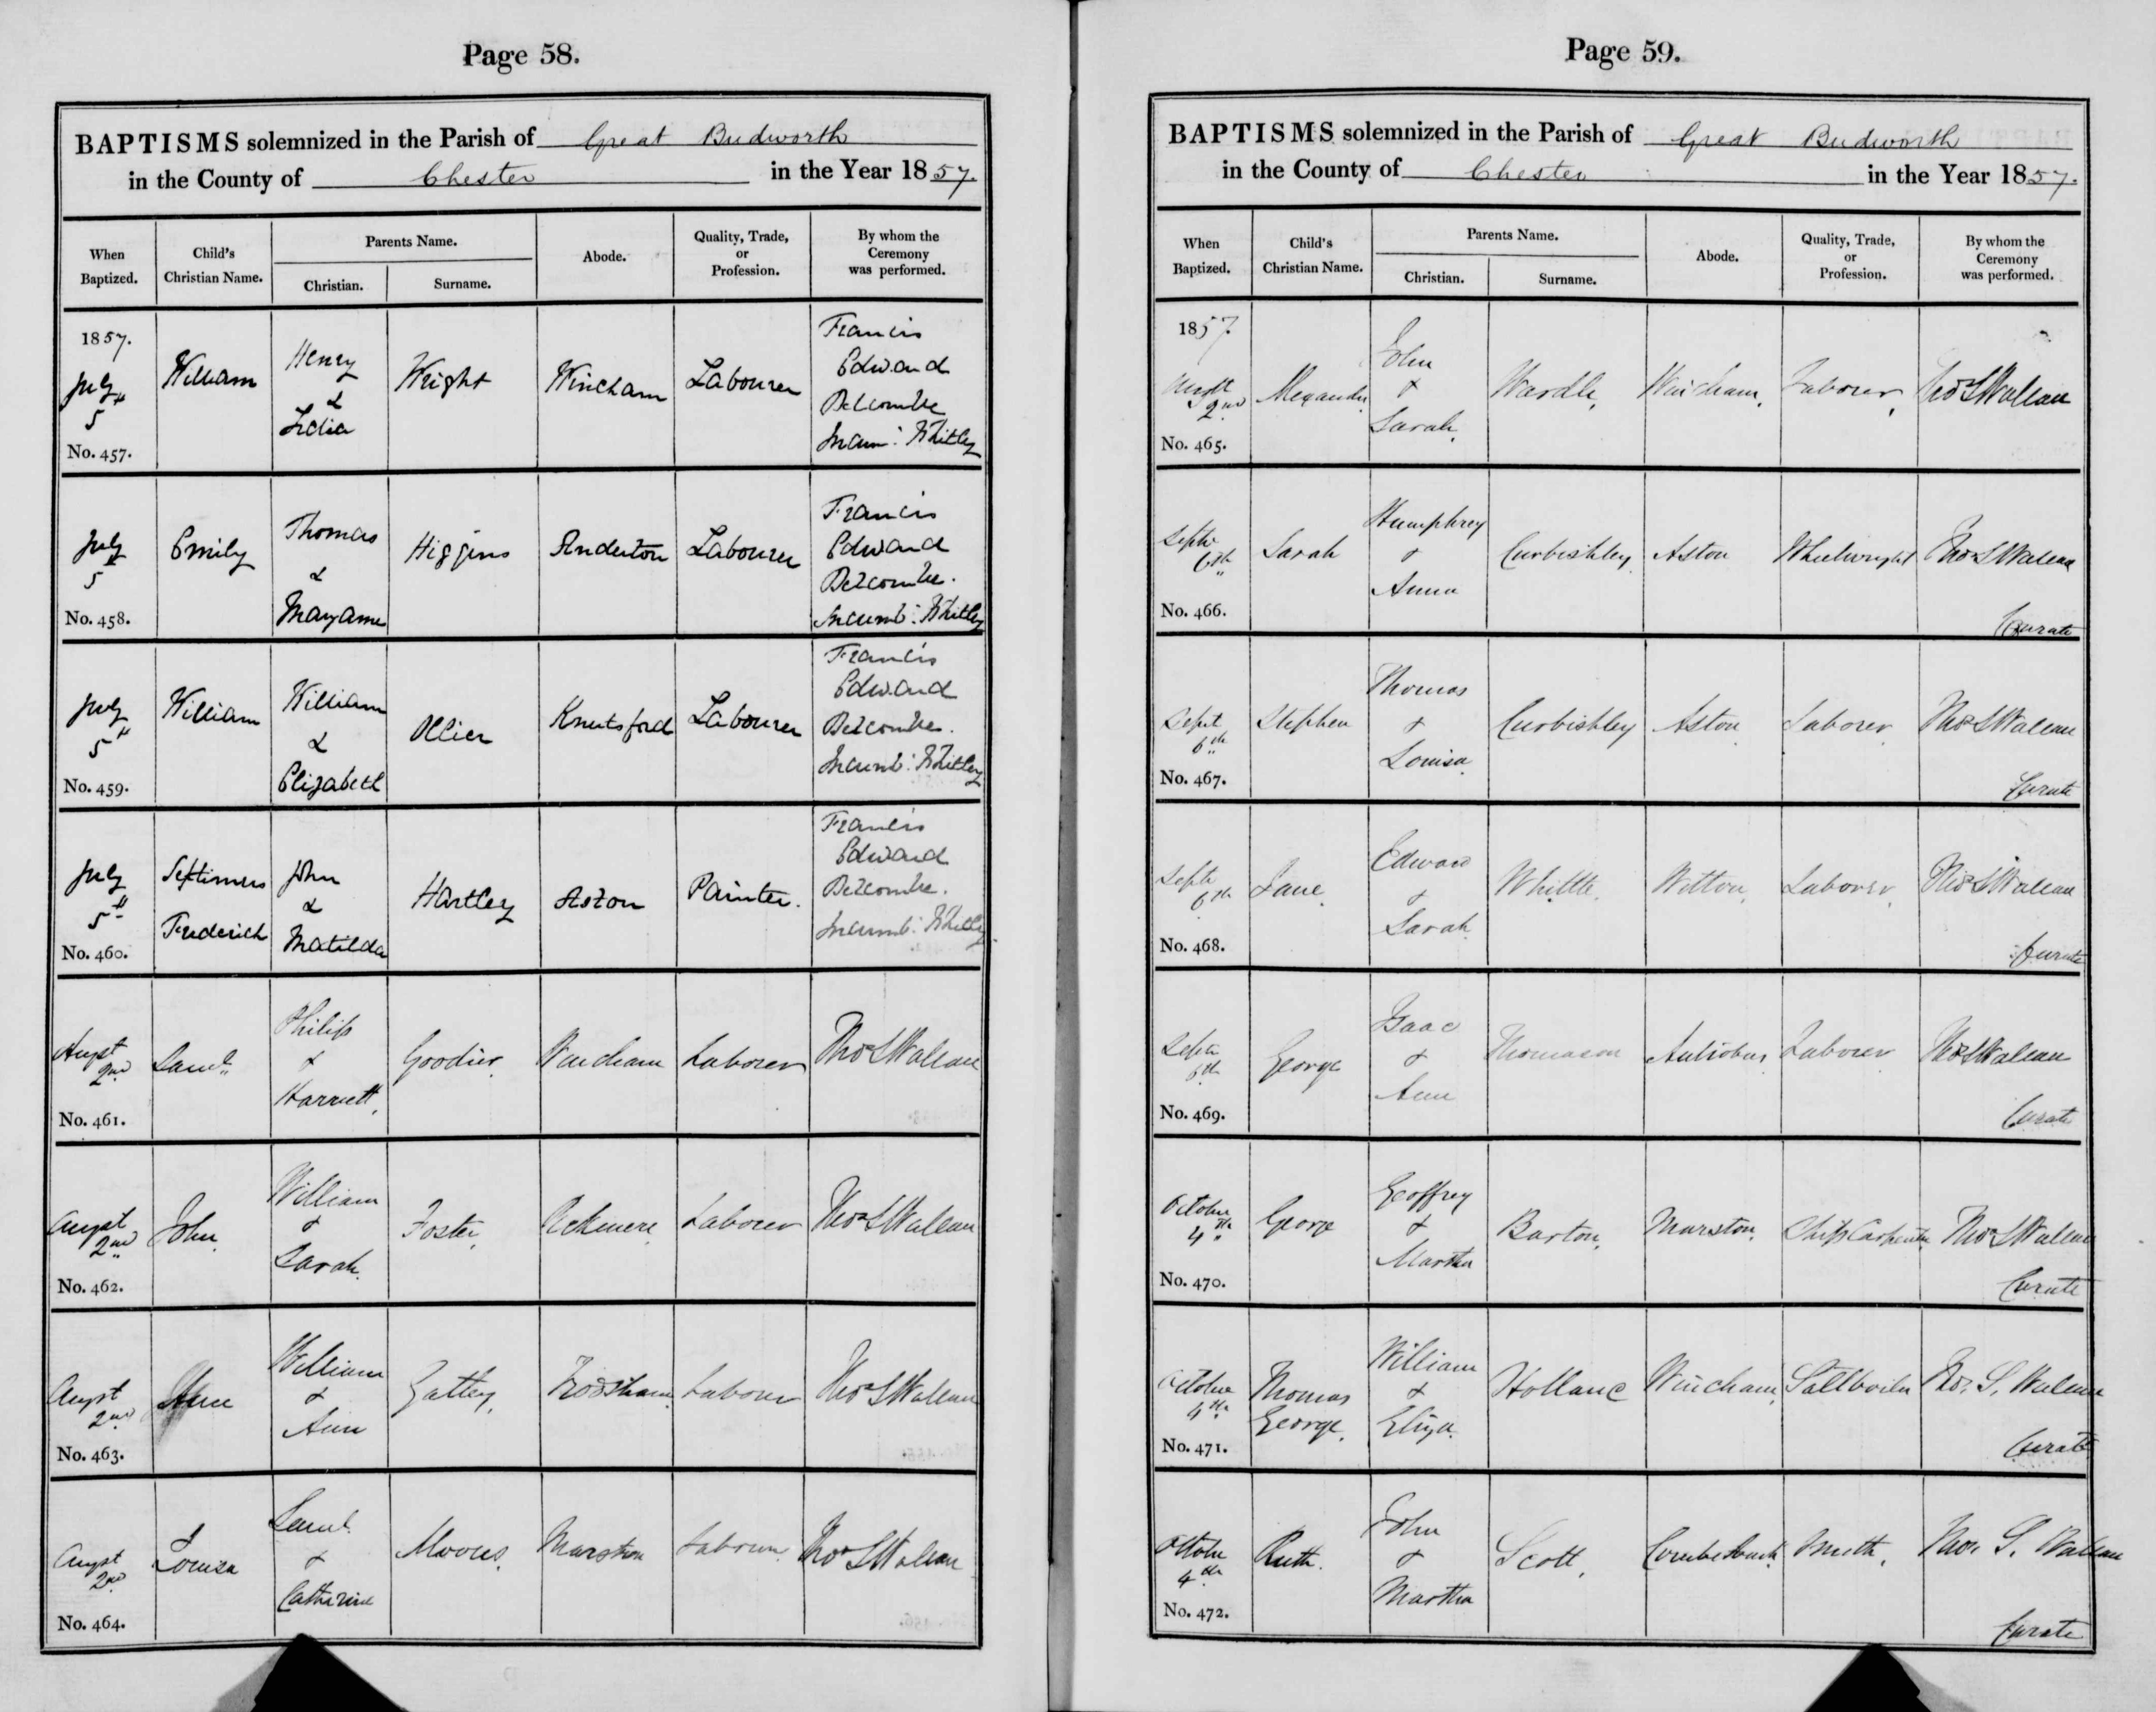 Page 58.
BAPTISMS solemnized in the Parish of Great Budworth
in the County of Chester in the Year 1857.
When Baptized.
Child's Christian Name.
Parents Name.
Christian.
Surname.
Abode.
Quality, Trade, or Profession.
By whom the Ceremony was performed.
1857.
July 5th
No. 457.
William
Henry
&
Lidia
Wright
Wincham
Labourer
Francis
Edward
Incum: Whitley
July 5th
No. 458.
Emily
Thomas
&
Maryanne
Higgins
Anderton
Labourer
Francis
Edward
Incumb: Whitley
July 5th
No. 459.
William
William
&
Elizabeth
Ollier
Knutsford
Labourer
Francis
Edward
Incumb: Whitley
July 5th
No. 460.
Septimus
Frederick
John
&
Matilda
Hartley
Aston
Painter.
Francis
Edward
Incumb: Whitley.
Augst 2nd
No. 461.
Saml.
Philip
&
Harriett,
Goodier
Wincham
Laborer
Thos S
August 2nd
No. 462.
John
William
&
Sarah.
Foster
Laborer
Thos S
Augst 2nd
No. 463.
Anne
William
&
Ann
Gatley,
Frodsham
Laborer
Thos S
Augst 2nd
No. 464.
Louisa
Saml.
&
Catharine
Moores
Marston
Laborer
Thos S
Page 59.
BAPTISMS solemnized in the Parish of Great Budworth
in the County of Chester in the Year 1857.
When Baptized.
Child's Christian Name.
Parents Name.
Christian.
Surname.
Abode.
Quality, Trade, or Profession.
By whom the Ceremony was performed.
1857
Augst 2nd
No. 465.
Alexander
John
&
Sarah,
Wardle,
Wincham,
Laborer,
Thos S
Septr 6th
No. 466.
Sarah
Humphrey
&
Anna
Curbishley
Aston
Wheelwright
Thos S
Curate
Sept 6th
No. 467.
Stephen
Thomas
&
Louisa
Curbishley
Aston
Laborer
Thos S
Curate
Septr 6th
No. 468.
Jane
Edward
&
Sarah
Whittle.
Witton,
Laborer,
Thos S
Curate
Septr 6th
No. 469.
George
Isaac
&
Ann
Thomason
Antrobus
Laborer
Thos S
Curate
October 4th
No. 470.
George
Geoffrey
&
Martha
Barton,
Marston,
Ship Carpenter
Thos S
Curate
October 4th
No. 471.
Thomas
George,
William
&
Eliza.
Holland
Wincham,
Saltboiler
Thos. S.
Curate
October 4th
No. 472.
Ruth.
John
&
Martha
Scott,
Smith,
Thos. S.
Curate